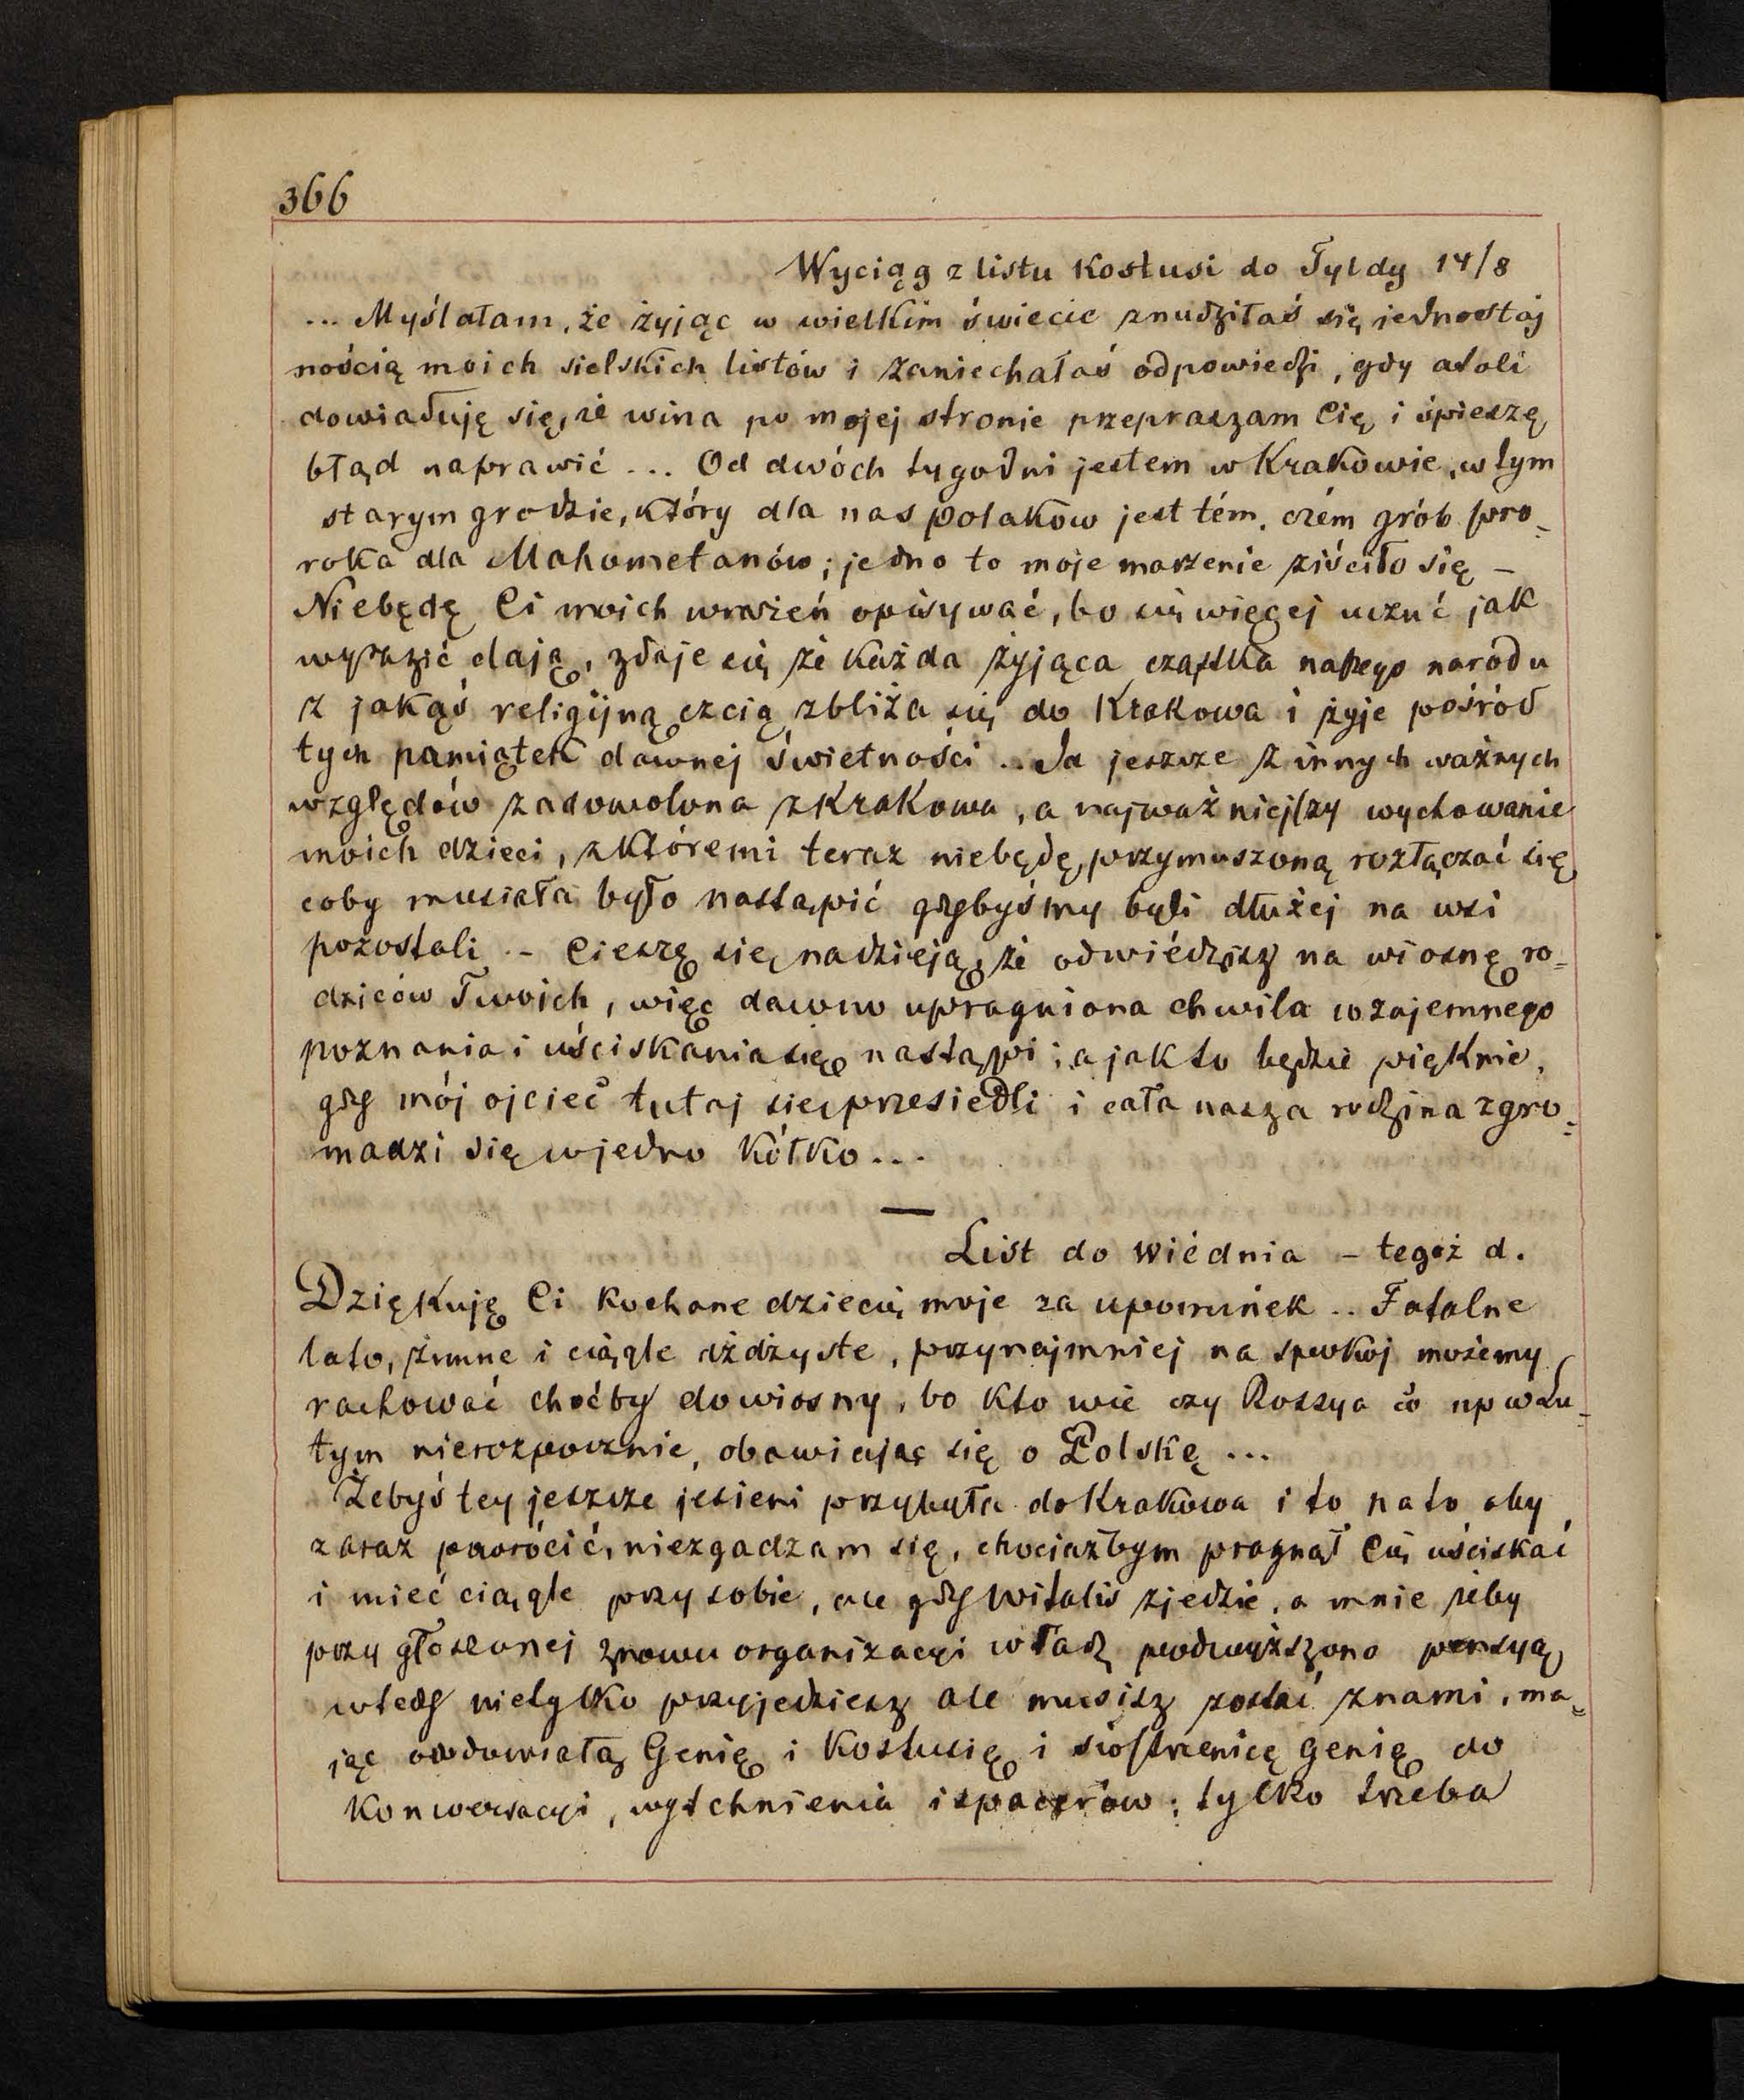 366
Wyciąg z listu Kostusi do Tyldy 14/8
... Myślałam, że żyjąc w wielkim świecie znudziłaś się jednostaj
nością moich sielskich listów i zaniechałaś odpowiedzi, gdy atoli
dowiaduję się, że wina po mojej stronie przepraszam Cię i śpieszę
błąd naprawić ... Od dwóch tygodni jestem w Krakowie, w tym
starym grodzie, który dla nas polaków jest tém, czém grób pro=
roka dla Mahometanów; jedno to moje marzenie ziściło się –
Niebędę Ci moich wrażeń opisywać, bo się więcej uczuć jak
wyrazić dają, zdaje się że każda żyjąca cząstka naszego narodu
z jakąś religijną czcią zbliża się do Krakowa i żyje pośród
tych pamiątek dawnej świetności .. Ja jeszcze z innych ważnych
względów zadowolona z Krakowa, a najważniejszy wychowanie
moich dzieci, z któremi teraz niebędę przymuszoną rozłączać się
coby musiała było nastąpić gdybyśmy byli dłużej na wsi
pozostali .- Cieszę się nadzieją, że odwiédzisz na wiosnę ro=
dziców Twoich, więc dawno upragniona chwila wzajemnego
poznania i uściskania się nastąpi; a jak to będzie pięknie,
gdy mój ojciec tutaj się przesiedli i cała nasza rodzina zgro=
madzi się w jedno kółko...
—
List do Wiédnia – tegoż d.
Dziękuję Ci kochane dziecię moje za upominek .. Fatalne
lato, zimne i ciągle dżdżyste, przynajmniej na spokój możemy
rachować choćby do wiosny, bo kto wie czy Rossya co np w Lu=
tym nierozpocznie, obawiając się o Polskę ...
Żebyś tey jeszcze jesieni przybyła do Krakowa i to na to aby
zaraz powrócić, niezgadzam się, chociażbym pragnął Cię uściskać
i mieć ciągle przy sobie, ale gdy Witalis zjedzie, a mnie żeby
przy głoszonej znowu organizacyi władz podwyższono pensyą
wtedy nietylko przyjedziesz ale musisz zostać z nami, ma=
jąc owdowiałą Genię i Kostusię i siostrzenicę Genię do
konwersacyi, wytchnienia i spacerów; tylko trzeba